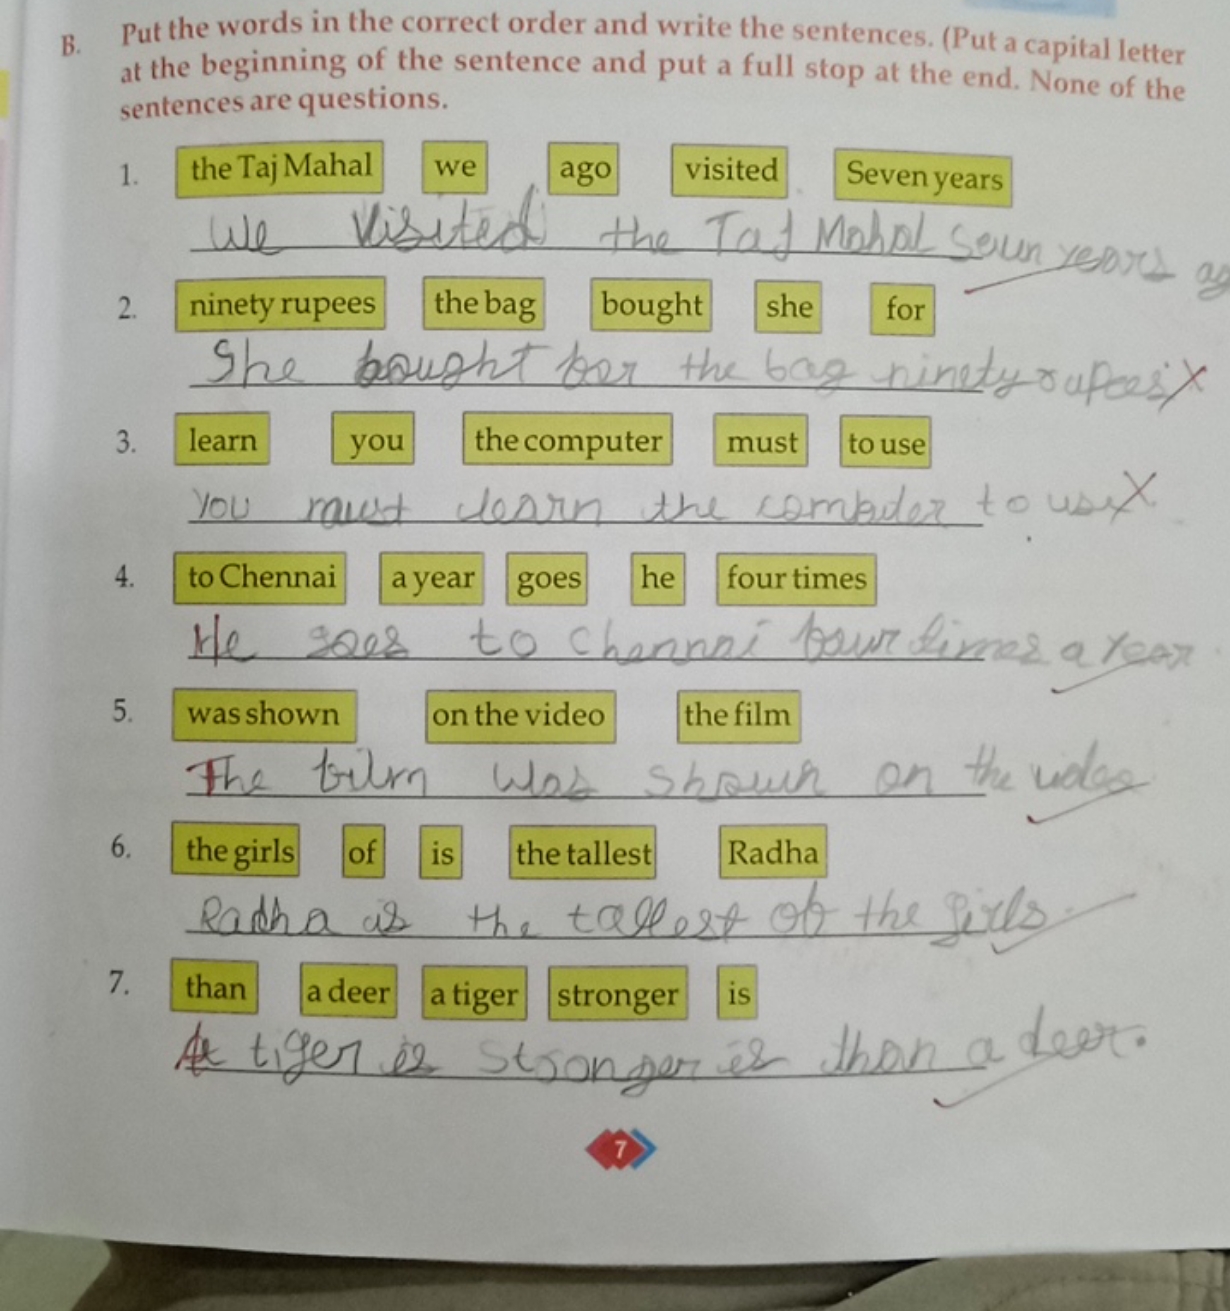 B. Put the words in the correct order and write the sentences. (Put a capital letter
at the beginning of the sentence and put a full stop at the end. None of the
sentences are questions.
1. the Taj Mahal we ago visited Seven years
We visited the Taj Mahal Seven years ag
2. ninety rupees the bag bought she for
She bought for the bag ninety rupees X
3. learn you the computer must to use
You must learn the computer to use X
4. to Chennai a year goes he four times
He goes to Chennai four times a year
5. was shown on the video the film
The film was shown on the video
6. the girls of is the tallest Radha
Radha is the tallest of the girls.
7. than a deer a tiger stronger is
A tiger is stronger is than a deer.
7